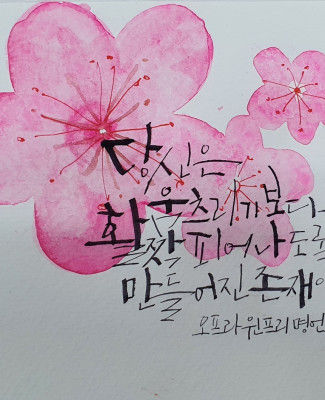 당신은
움츠리기보다
활짝 피어나도록
만들어진 존재
오프라윈프리 명언